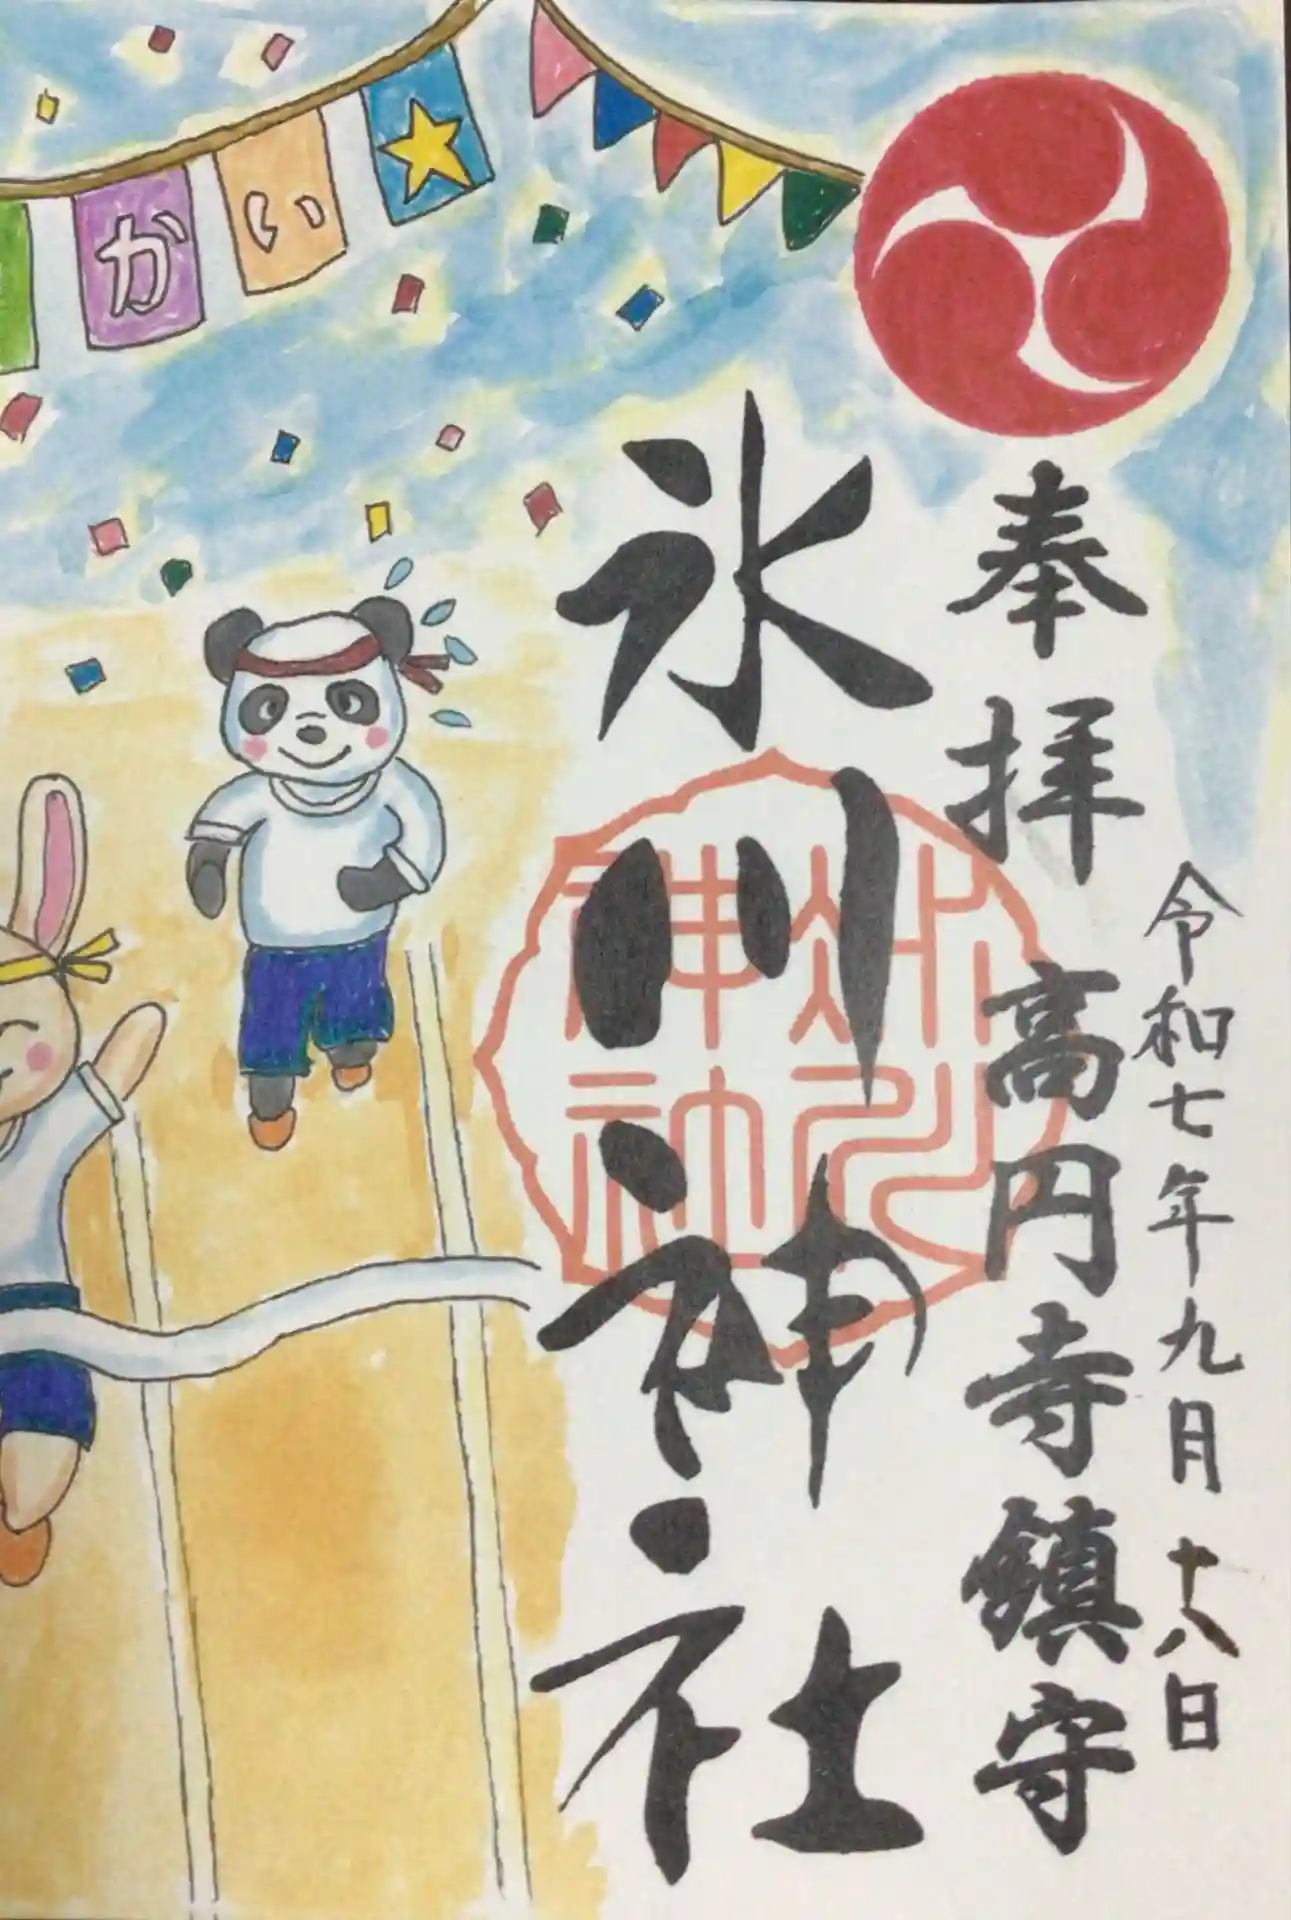 令和七年九月十八日
奉拝 高円寺鎮守
氷川神社
かい